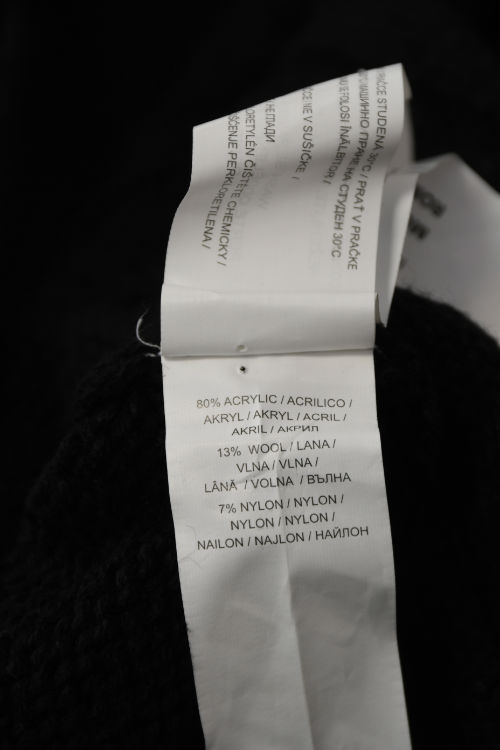 PRAČCE STUDENA 30°C / PRAŤ V PRAČKE
МАШИННО ПРАНЕ НА СТУДЕН 30°C
FOLOSI ÎNĂLBITOR /
NE V SUŠIČKE /
НЕ ГЛАДИ
ČISTĚTE CHEMICKY /
PERKLORETILENA /
80% ACRYLIC / ACRILICO /
AKRYL / AKRYL / ACRIL /
AKRIL / АКРИЛ
13% WOOL / LANA /
VLNA / VLNA /
LÂNĂ / VOLNA / ВЪЛНА
7% NYLON / NYLON /
NYLON / NYLON /
NAILON / NAJLON / НАЙЛОН